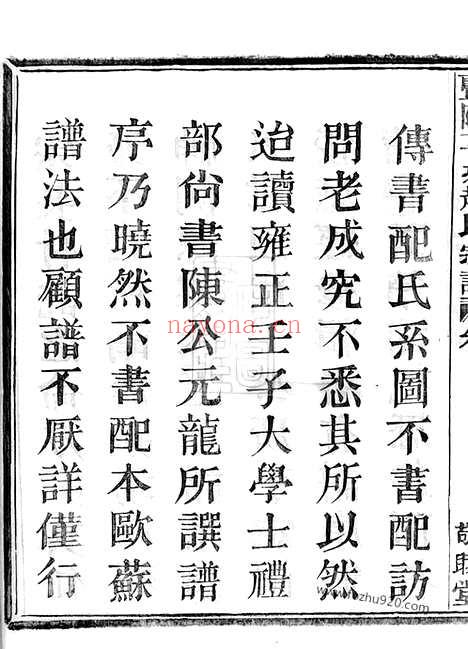 傳書配氏系圖不書配訪
問老成究不悉其所以然
迨讀雍正壬子大學士禮
部尚書陳公元龍所譔譜
序乃曉然不書配本歐蘇
譜法也顧譜不厭詳僅行
nayona.cn